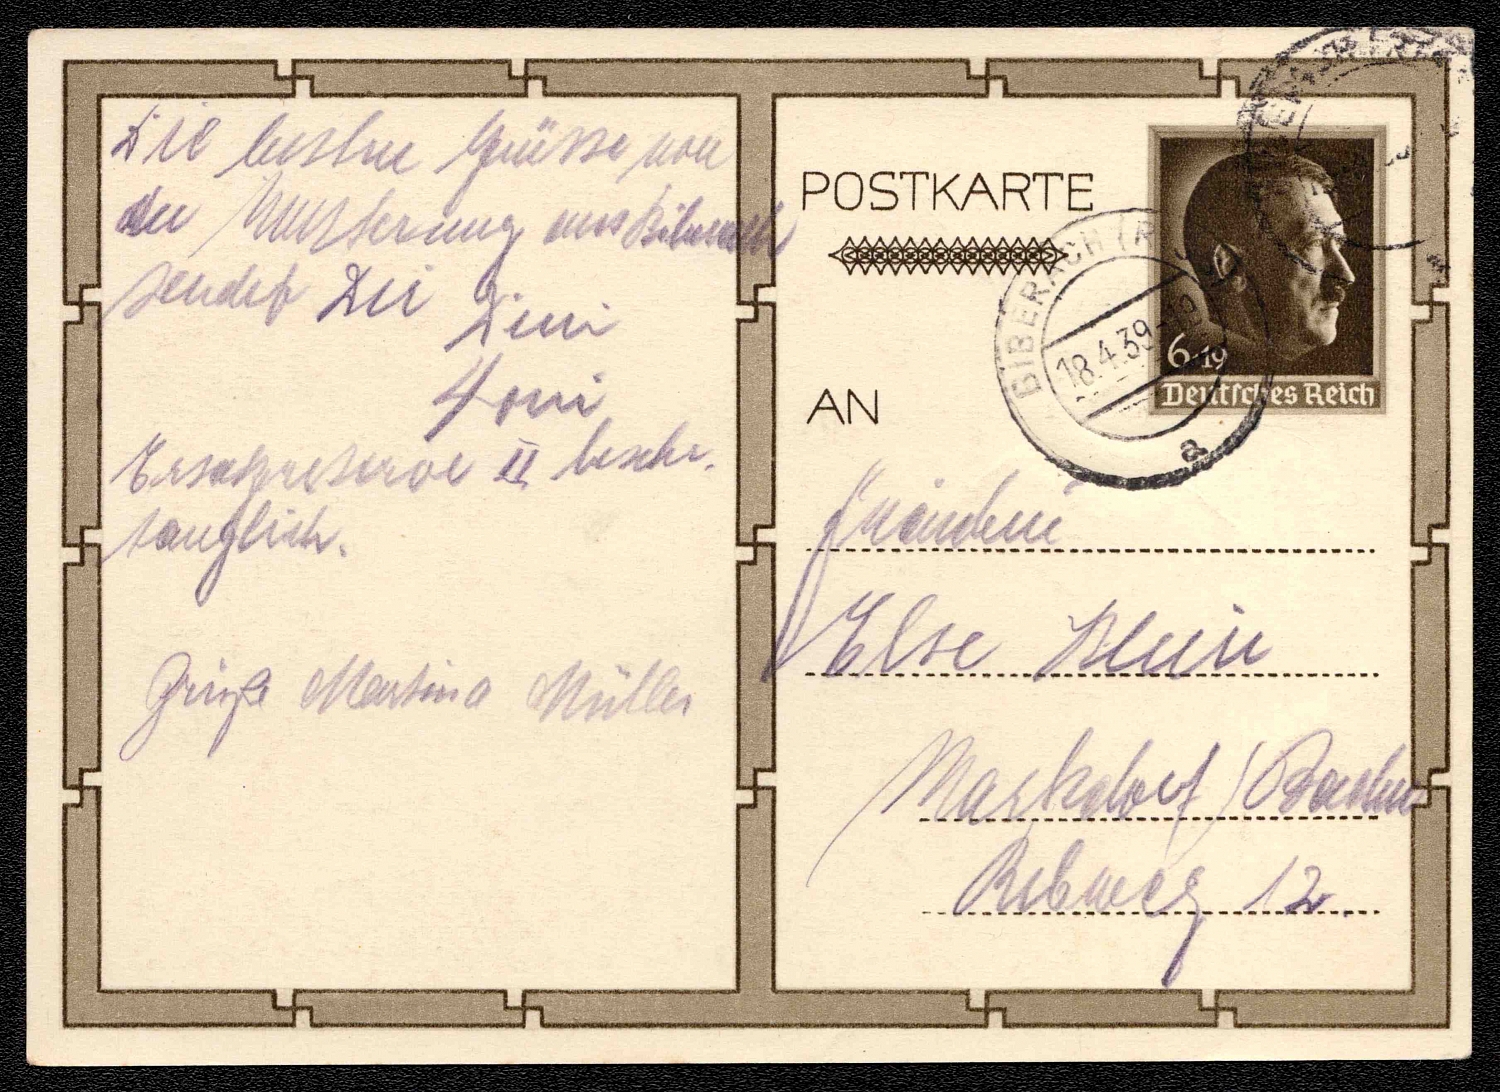 Die besten Grüsse von
der Musterung aus Biberach
sendet Dir
Dein
Toni
Ersatzreserve II beschr.
tauglich.
Grüße Martina Müller
POSTKARTE
AN
BIBERACH (R
18.4.39-19
a
6+19
Deutsches Reich
Fräulein
Else Klein
Markdorf / Baden
Rebweg 12.